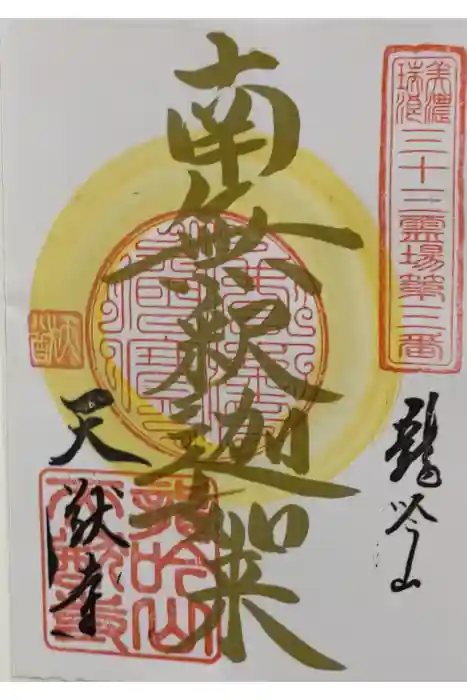 美濃
瑞浪
三十三霊場第三番
龍吟山
南無釈迦如来
天猷寺
龍吟山
天猷寺